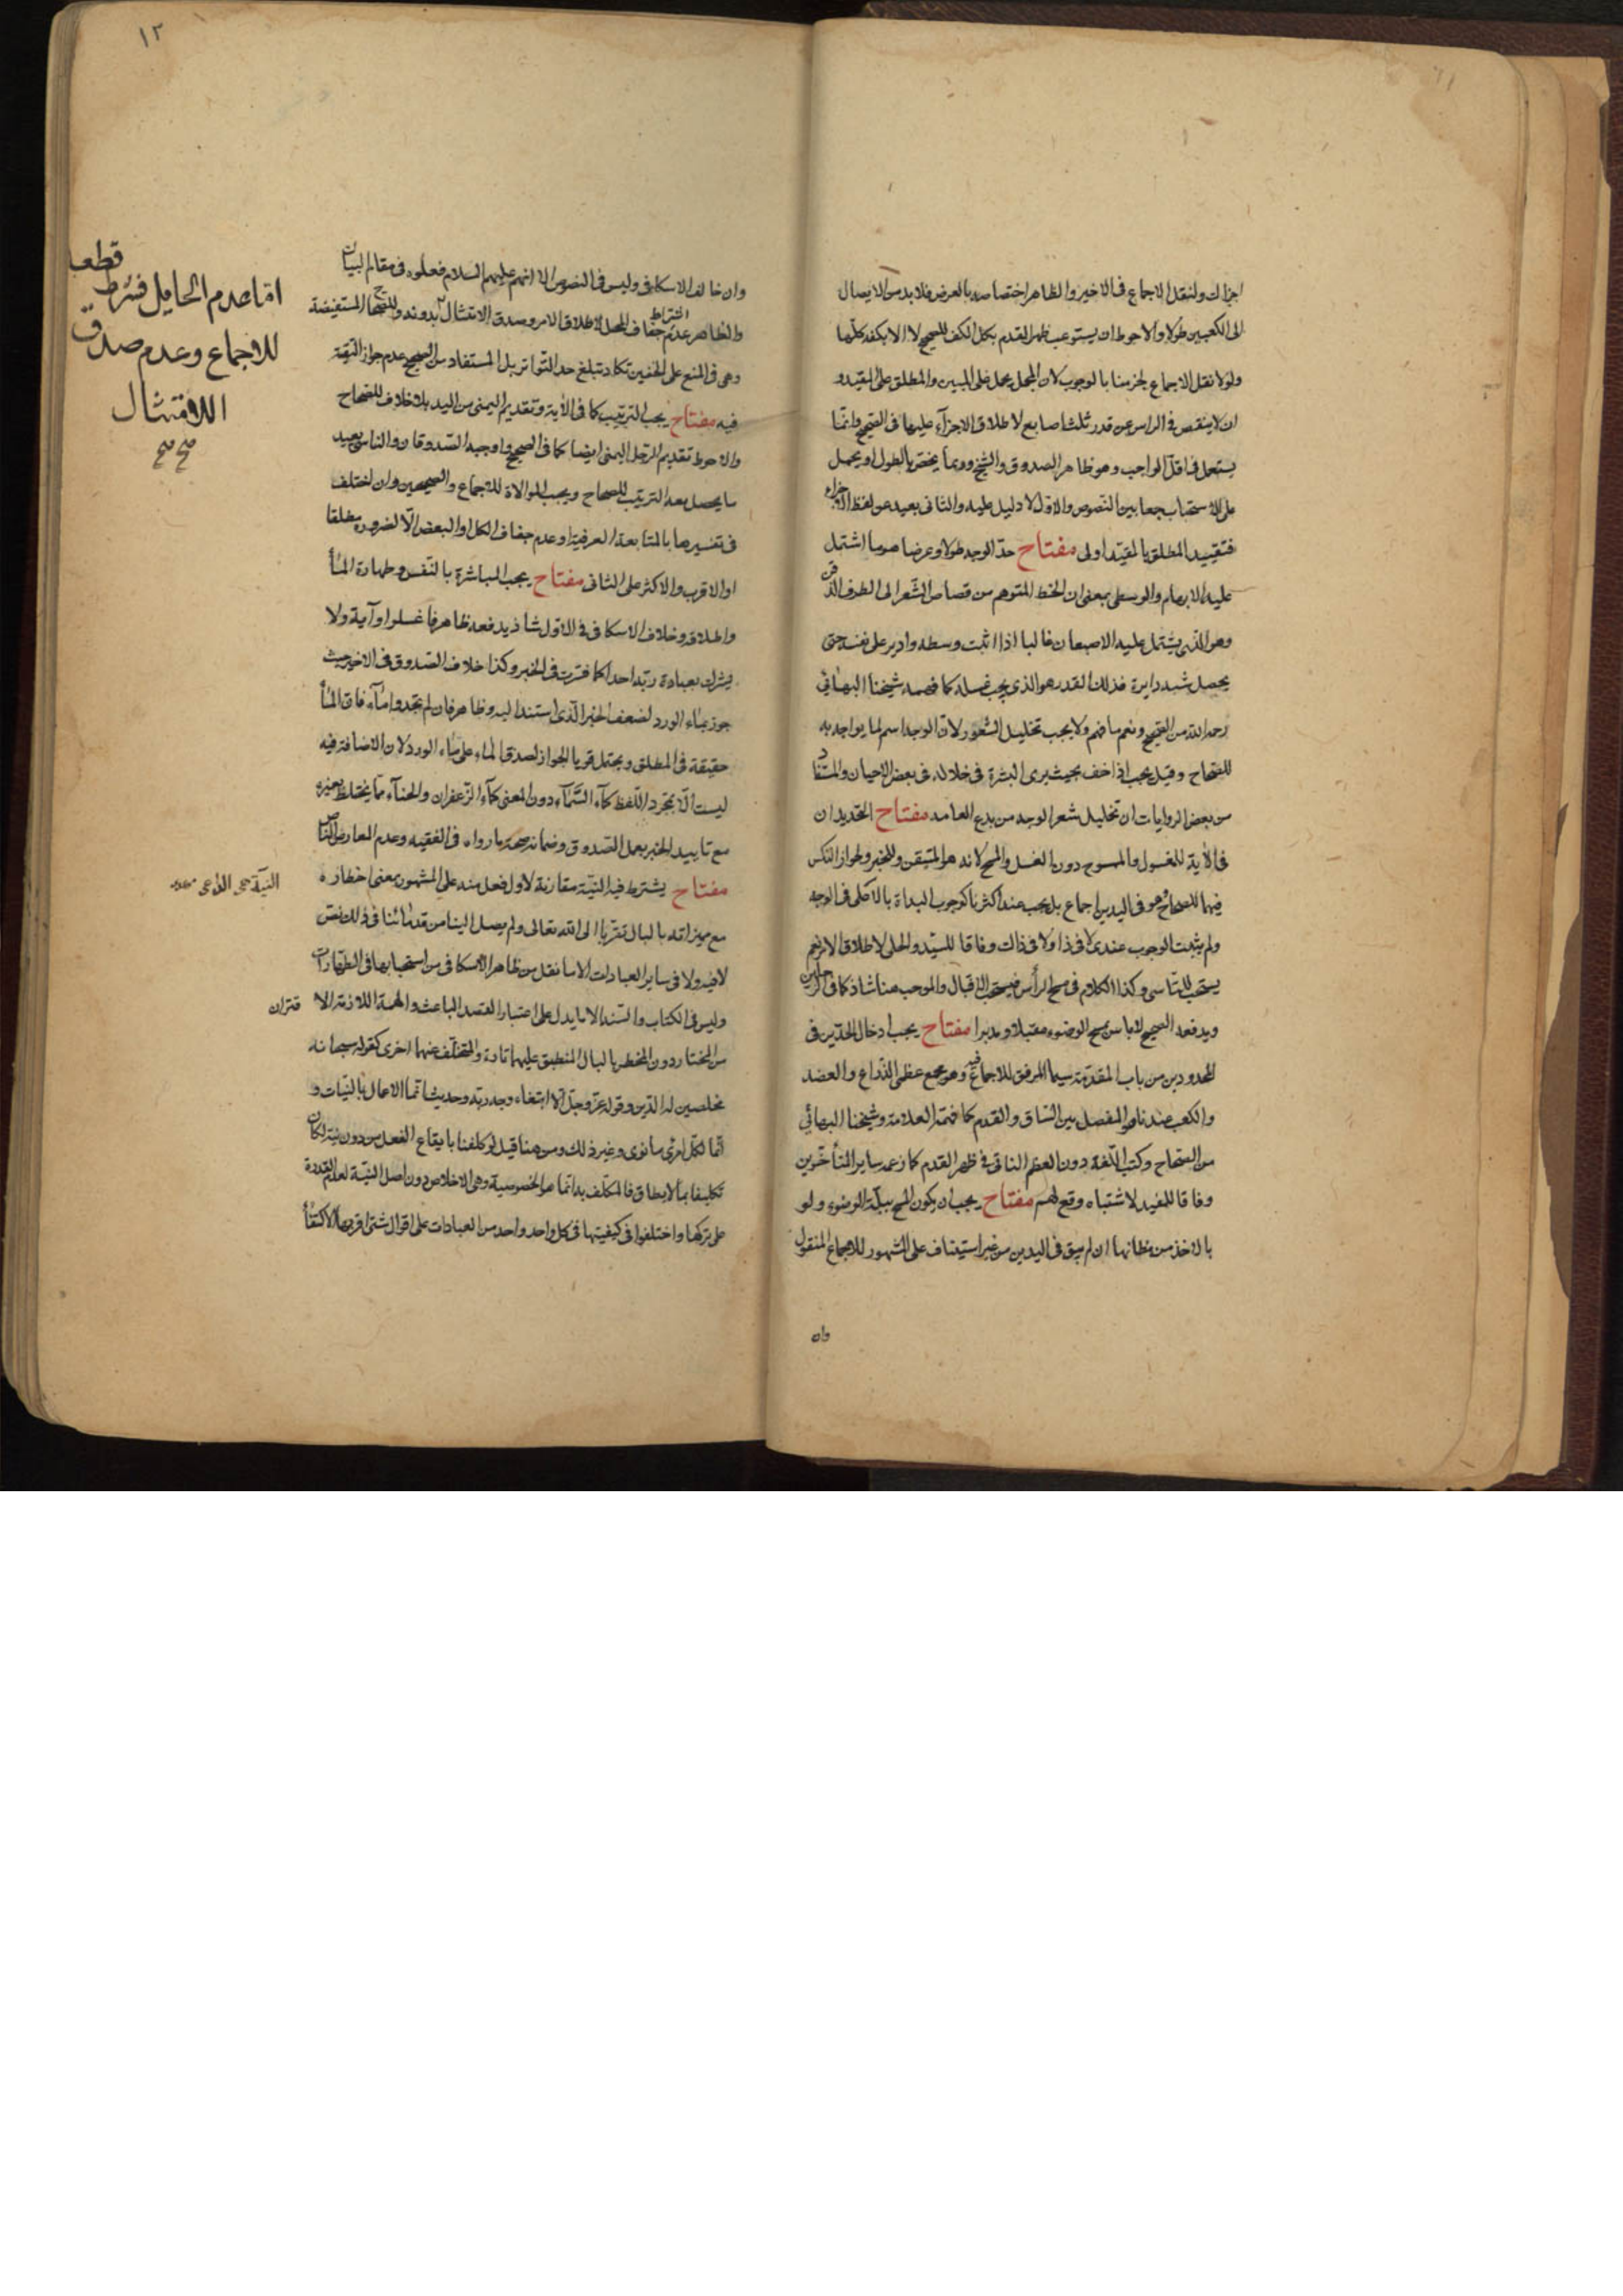 اجزاك ولنقل الاجماع فى الاخير والظاهر اختصاصه بالعرض فلا بد من الايصال
الى الكعبين طولا والاحوط ان يستوعب ظهر القدم بكل الكف للصحيح لا الا بكفه كلها
ولولا نقل الاجماع لجزمنا بالوجوب لان المجمل يحمل على المبين والمطلق على المقيد و
ان لا ينقص فى الراس عن قدر ثلث اصابع لاطلاق الاجزاء عليها فى الصحيح وانما
يستعمل فى اقل الواجب وهو ظاهر الصدوق والشيخ وربما يختص بالطول او يحمل
على الاستحباب جمعا بين النصوص والاول لا دليل عليه والثانى بعيد عن لفظ الاجزاء
فتقييد المطلق بالمقيد اولى مفتاح حد الوجه طولا وعرضا هو ما اشتمل
عليه الابهام والوسطى بمعنى ان الخط المتوهم من قصاص الشعر الى الطرف الذقن
وهو الذى يشتمل عليه الاصبعان غالبا اذا اثبت وسطه وادير على نفسه حتى
يحصل شبه دايرة فذلك القدر هو الذى يجب غسله كما فهمه شيخنا البهائى
رحمه الله من الصحيح ونعم ما فهم ولا يجب تخليل الشعور لان الوجه اسم لما يواجه به
للصحاح وقيل يجب اذا خف بحيث يرى البشرة فى خلاله فى بعض الاحيان والمستفاد
من بعض الروايات ان تخليل شعر الوجه من بدع العامه مفتاح التحديدان
فى الاية للمغسول والممسوح دون الغسل والمسح لانه هو المتيقن وللخبر ولجواز النكس
فيهما للصحاح وهو فى اليدين اجماع بل يجب عند اكثرنا كوجوب البداة بالاعلى فى الوجه
ولم يثبت الوجوب عندى لا فى ذا ولا فى ذاك وفاقا للسيد والحلى لاطلاق الامر نعم
يستحب للتاسى وكذا الكلام فى مسح الرأس فيستحب الاقبال والموجب هنا شاذ كما فى الرجلين
ويدفعه الصحيح لا باس بمسح الوضوء مقبلا ومدبرا مفتاح يجب ادخال الحدين فى
المحدودين من باب المقدمة سيما المرفق للاجماع فيه وهو مجمع عظمى الذراع والعضد
والكعب عندنا هو المفصل بين الساق والقدم كما فهمه العلامة وشيخنا البهائي
من الصحاح وكتب اللغة دون العظم الناتى فى ظهر القدم كما زعمه ساير المتأخرين
وفاقا للمفيد لاشتباه وقع لهم مفتاح يجب ان يكون المسح ببلة الوضوء ولو
بالاخذ من مظانها ان لم يبق فى اليدين من غير استيناف على المشهور للاجماع المنقول
وان
١٢
وان خالف الاسكافى وليس فى النصوص الا انهم عليهم السلام فعلوه فى مقام البيان
والظاهر عدم اشتراط جفاف المحل لاطلاق الامر وصدق الامتثال بدونه وللصحاح المستفيضة
وهى فى المنع على الخفين تكاد تبلغ حد التواتر بل المستفاد من الصحيح عدم جواز التقية
فيه مفتاح يجب الترتيب كما فى الاية وتقديم اليمنى من اليد بلا خلاف للصحاح
والاحوط تقديم الرجل اليمنى ايضا كما فى الصحيح واوجبه الصدوقان والناسى يعيد
ما يحصل معه الترتيب للصحاح ويجب الموالاة للاجماع والصحيحين وان اختلف
فى تفسيرها بالمتابعة العرفية او عدم جفاف الكل او البعض الا لضرورة مطلقا
او الاقرب والاكثر على الثانى مفتاح يجب المباشرة بالنفس وطهارة الماء
واطلاقه وخلاف الاسكافى فى الاول شاذ يدفعه ظاهر فاغسلوا وآية ولا
يشرك بعبادة ربه احدا كما فسرت فى الخبر وكذا خلاف الصدوق فى الاخير حيث
جوز بماء الورد لضعف الخبر الذى استند اليه وظاهر فان لم تجدوا ماء فان الماء
حقيقة فى المطلق ويحتمل قويا الجواز لصدق الماء على ماء الورد لان الاضافة فيه
ليست الا بمجرد اللفظ كماء السماء دون المعنى كماء الزعفران والحناء مما يختلط بغيره
مع تاييد الخبر بعمل الصدوق وضمانه صحة ما رواه فى الفقيه وعدم المعارض الناص
مفتاح يشترط فيه النية مقارنة لاول فعل منه على المشهور بمعنى اخطاره
مع مميزاته بالبال تقربا الى الله تعالى ولم يصل الينا من قدمائنا فى ذلك نص
لا فيه ولا فى ساير العبادات الا ما نقل من ظاهر الاسكافى من استحبابها فى الطهارات
وليس فى الكتاب والسنة الا ما يدل على اعتبار القصد الباعث والهمة اللازمة الا
من المختار دون المخطر بالبال المنطبق عليهما تارة والمتخلف عنهما اخرى كقوله سبحانه
مخلصين له الدين وقوله عز وجل الا ابتغاء وجه ربه وحديث انما الاعمال بالنيات و
انما لكل امرئ ما نوى وغير ذلك ومن هنا قيل لو كلفنا بايقاع الفعل من دون نية لكان
تكليفا بما لا يطاق فالمكلف به انما هو الخصوصية وهى الاخلاص دون اصل النية لعدم القدرة
على تركها واختلفوا فى كيفيتها فى كل واحد واحد من العبادات على اقوال شتى اقربها الاكتفاء
اما عدم الحايل فشرط قطعا
للاجماع وعدم صدق
الامتثال
صح صح
النية هى الداعى
قتران